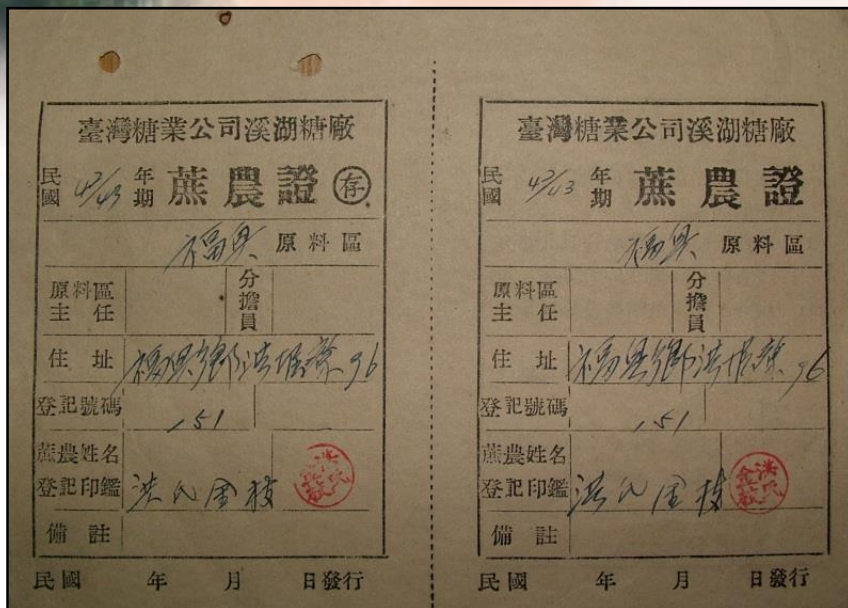 臺灣糖業公司溪湖糖廠
民國 42/43 年期 蔗農證 存
福興 原料區
原料區主任 分擔員
住址 福興鄉洪堀寮 96
登記號碼 151
蔗農姓名
登記印鑑 洪氏金枝 洪氏金枝
備註
民國 年 月 日發行
臺灣糖業公司溪湖糖廠
民國 42/43 年期 蔗農證
福興 原料區
原料區主任 分擔員
住址 福興鄉洪堀寮 96
登記號碼 151
蔗農姓名
登記印鑑 洪氏金枝 洪氏金枝
備註
民國 年 月 日發行